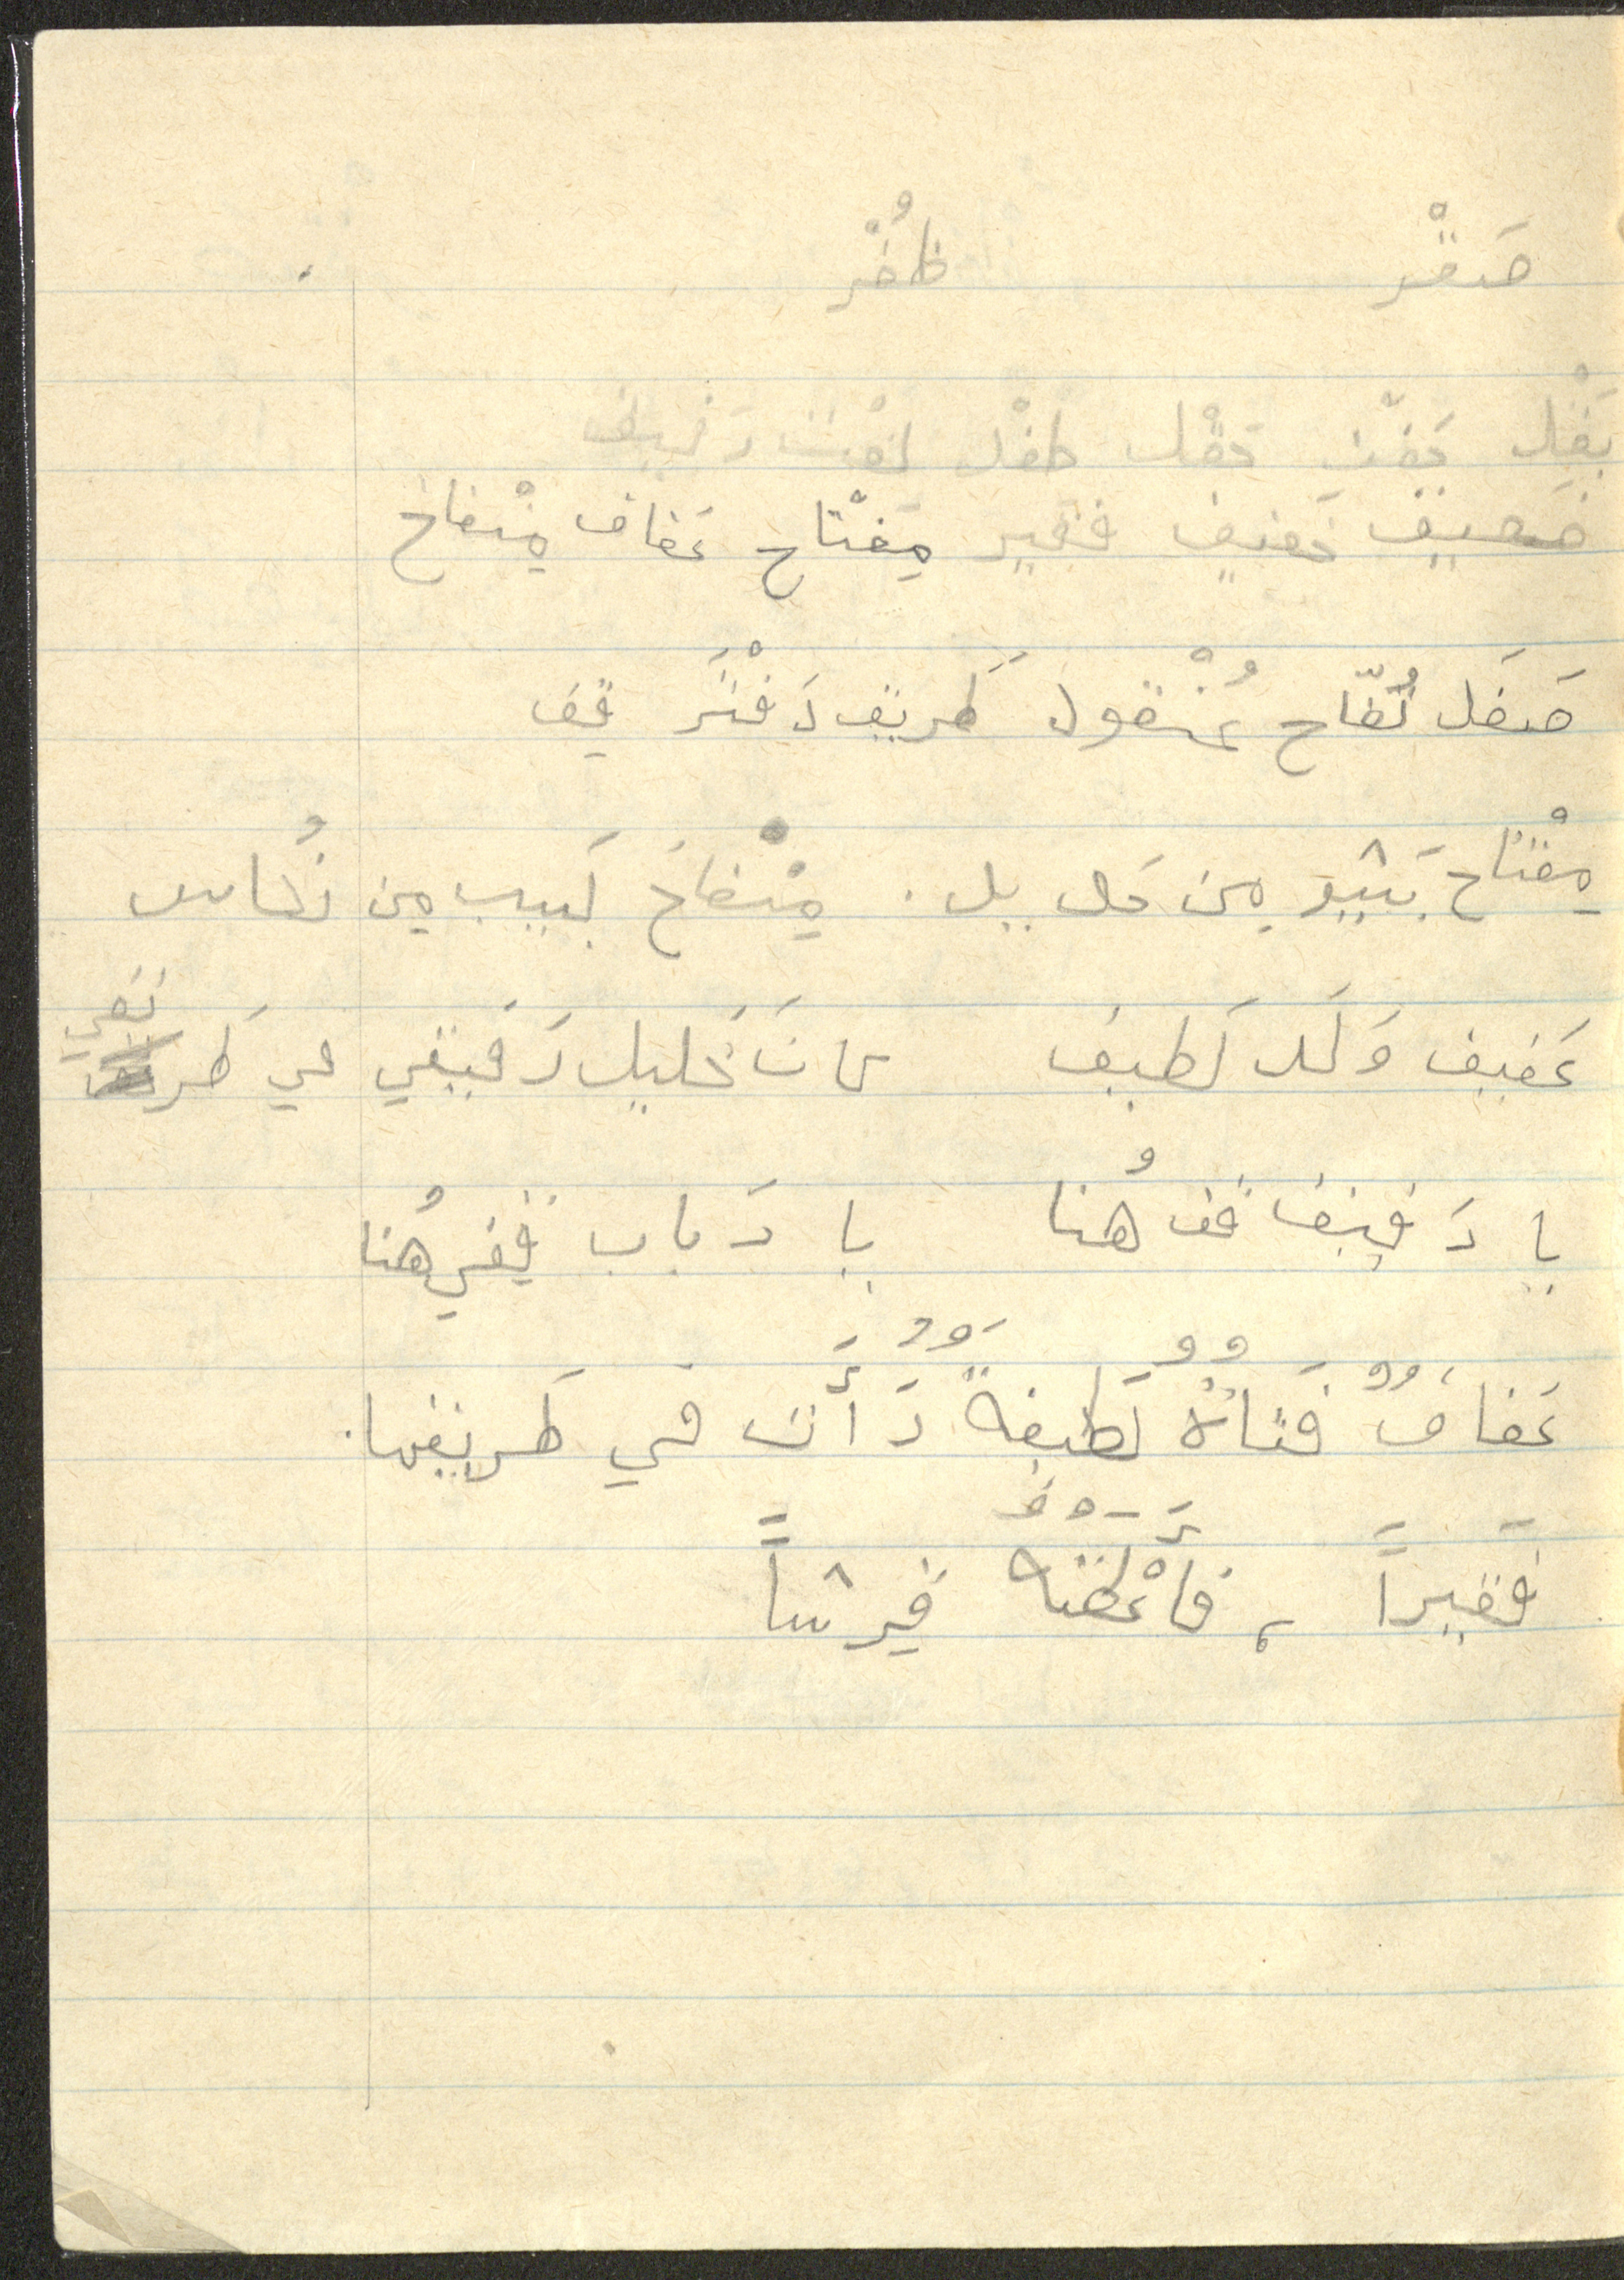 صَقْر ظُفْر
بَغْل جَفْن حَقْل طِفْل رَفيق
ضعيف خَفيف فَقير مِفْتاح عَفاف مِنْفاخ
صَقَل تُفّاح عُنْقود طَريق دَفْتَر قِف
مِفْتاح بَشير مِن حَديد. مِنْفاخ لَبيب مِن نُحاس
عَفيف وَلَد لَطيف كانَ خَليل رَفيقي في طَريقي
يا رَفيق قف هُنا يا رَباب قِفي هُنا
عَفافُ فَتاةٌ لَطيفةٌ رَأَت في طَريقِها
فَقيراً، فأَعْطَتْهُ قِرشاً